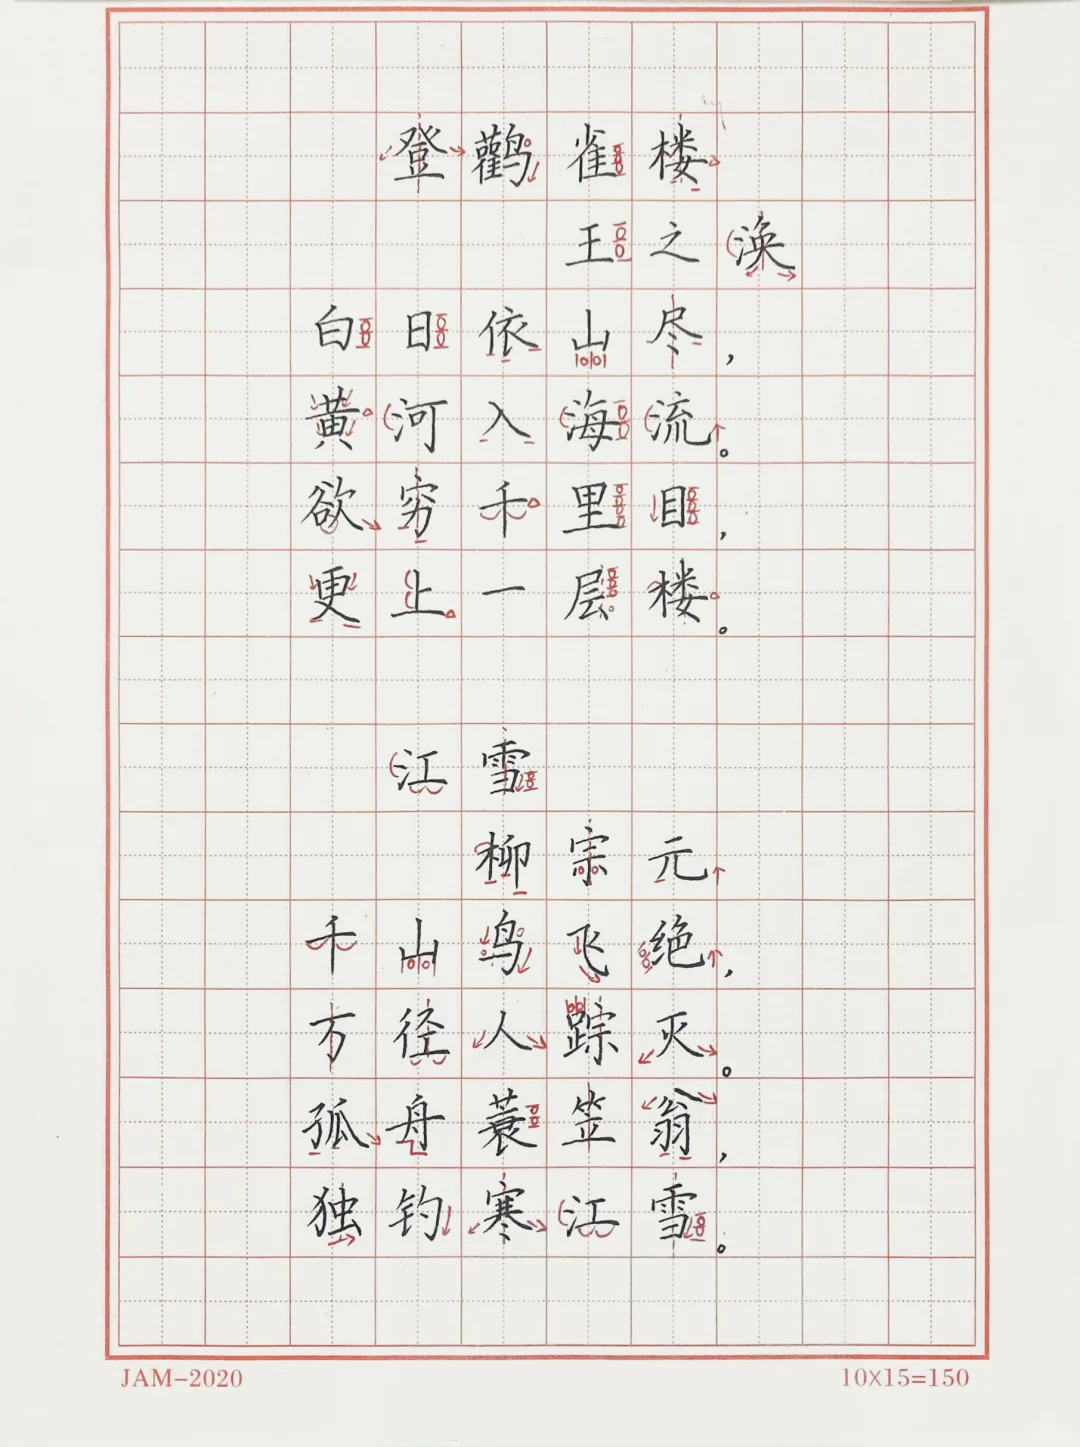 登鹳雀楼
王之涣
白日依山尽，
黄河入海流。
欲穷千里目，
更上一层楼。
江雪
柳宗元
千山鸟飞绝，
万径人踪灭。
孤舟蓑笠翁，
独钓寒江雪。
JAM-2020 10×15=150